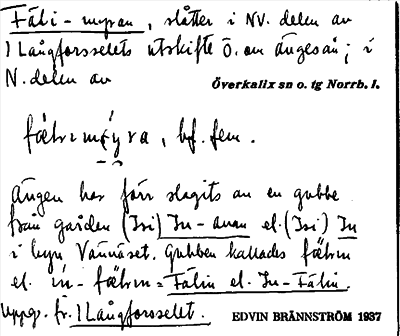 Fäli-myran, slåtter i NV. delen av
1 Långforsselets utskifte ö. om Ängesån; i
N. delen av
Överkalix sn o. tg Norrb. l.
bf. fem.
Ängen har förr slagits av en gubbe
från gården (Isi) In-anan el. (Isi) In
i byn Vännäset. Gubben kallades fälin
el. in-fälin = Fälin el. In-Fälin.
uppg. fr. 1 Långforsselet.
EDVIN BRÄNNSTRÖM 1937